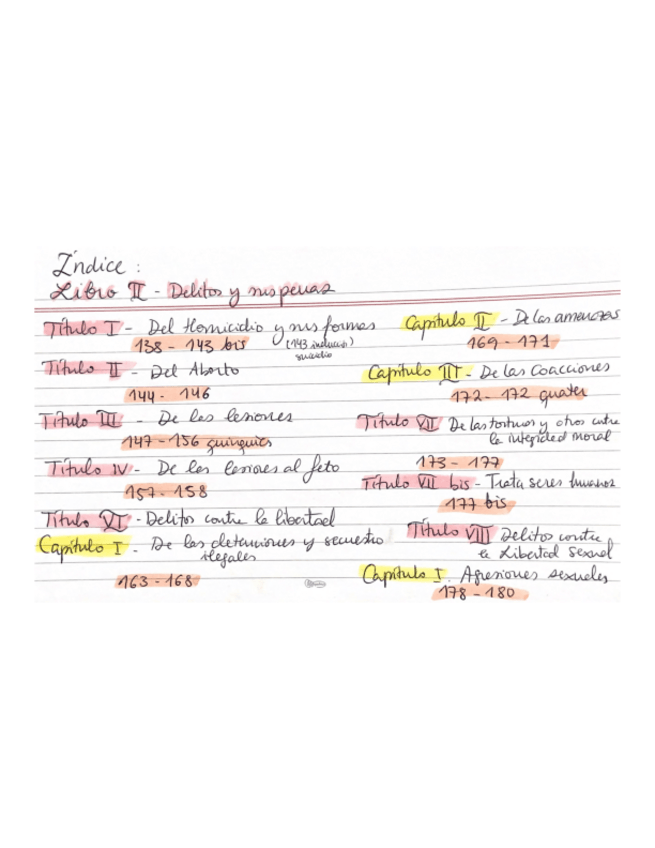 Índice :
Libro II - Delitos y sus penas
Título I - Del Homicidio y sus formas
138 - 143 bis (143 inducció)
suicidio
Título II - Del Aborto
144 - 146
Título III - De las lesiones
147 - 156 quinquies
Título IV - De las lesiones al feto
157 - 158
Título VI - Delitos contra la libertad
Capítulo I - De las detenciones y secuestro
ilegales
163 - 168
Capítulo II - De las amenazas
169 - 171
Capítulo III - De las Coacciones
172 - 172 quater
Título VII De las torturas y otros contra
la integridad moral
173 - 177
Título VII bis - Trata seres humanos
177 bis
Título VIII Delitos contra
la Libertad Sexual
Capítulo I. Agresiones sexuales
178 - 180